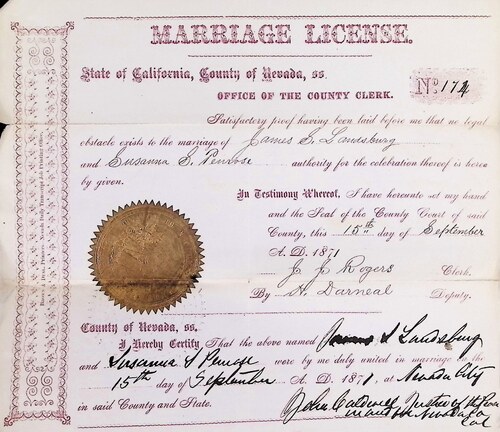 MARRIAGE LICENSE.
State of California, County of Nevada, ss.
No. 174
OFFICE OF THE COUNTY CLERK.
Satisfactory proof having been laid before me that no legal
obstacle exists to the marriage of James S. Landsburg
and Susanna S. Penrose authority for the celebration thereof is here
by given.
In Testimony Whereof, I have hereunto set my hand
and the Seal of the County Court of said
County, this 15th day of September
A. D. 1871
J. J. Rogers Clerk.
By H. Darneal Deputy.
County of Nevada, ss.
I Hereby Certify That the above named James S Landsburg
and Susanna S Penrose were by me duly united in marriage on the
15th day of September A. D. 1871, at Nevada City
in said County and State.
John Caldwell Justice of the Peace
in and for Nevada Co
Cal